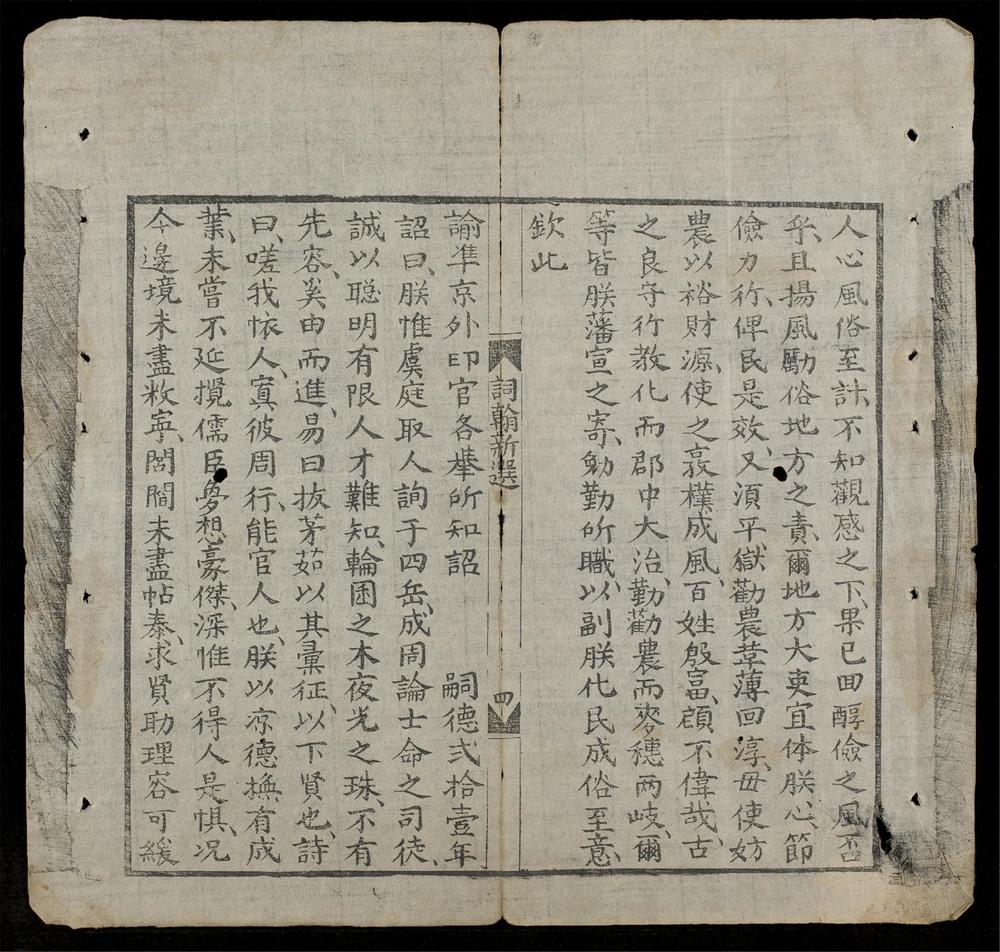 人心風俗至計、不知觀感之下、果已回醇儉之風否
乎、且揚風勵俗地方之責、爾地方大吏宜体朕心、節
儉力行、俾民是效、又須平獄勸農、䔲薄回淳、毋使妨
農以裕財源、使之敦樸成風、百姓殷富、顧不偉哉、古
之良守行教化而郡中大治、勤勸農而麥穗兩岐、爾
等皆朕藩宣之寄、勉勤所職、以副朕化民成俗至意、
欽此
詞翰新選
四
諭準京外印官各舉所知詔 嗣德弍拾壹年
詔曰、朕惟虞庭取人詢于四岳、成周論士命之司徒、
誠以聡明有限人才難知、輪囷之木夜光之珠、不有
先容、奚由而進、易曰拔茅茹以其彙征、以下賢也、詩
曰、嗟我怀人、寘彼周行、能官人也、朕以凉德撫有成
業、未嘗不延攬儒臣夢想豪傑、深惟不得人是惧、况
今邊境未盡敉寧、閭閻未盡帖泰、求賢助理容可緩